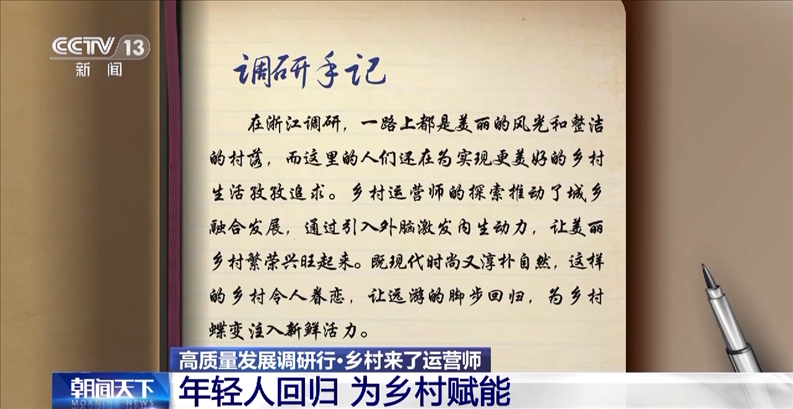 CCTV 13
新闻
调研手记
在浙江调研，一路上都是美丽的风光和整洁
的村落，而这里的人们还在为实现更美好的乡村
生活孜孜追求。乡村运营师的探索推动了城乡
融合发展，通过引入外脑激发内生动力，让美丽
乡村繁荣兴旺起来。既现代时尚又淳朴自然，这样
的乡村令人眷恋，让远游的脚步回归，为乡村
蝶变注入新鲜活力。
高质量发展调研行·乡村来了运营师
朝闻天下
年轻人回归 为乡村赋能